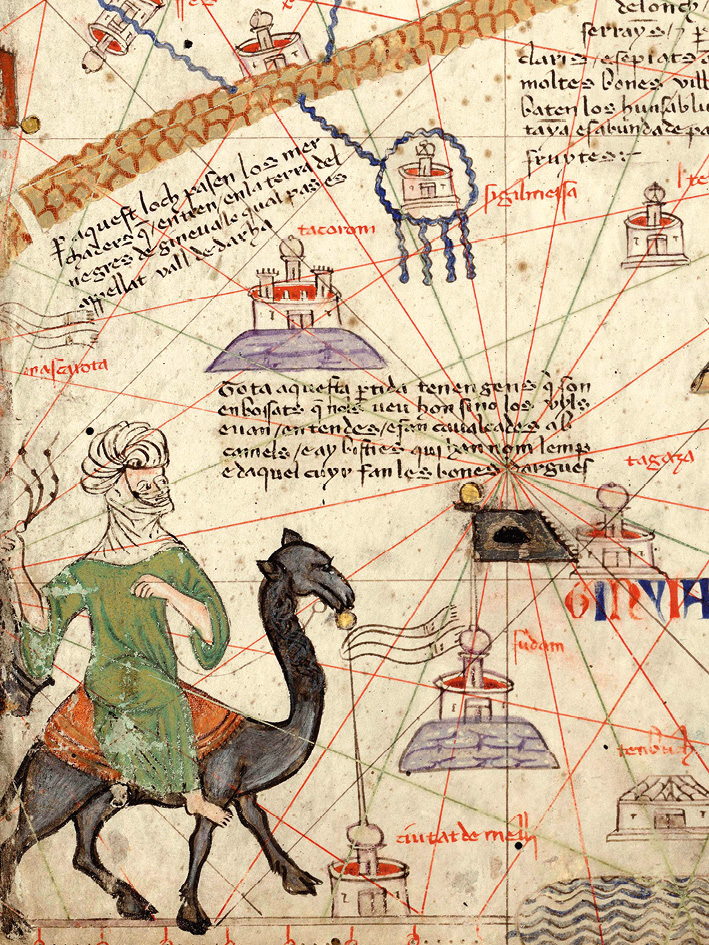 delonch /
serrays / p
claris / e septats d
moltes bones vill
baten los hunsablu
taya e sabundade pa
fruytes :-
P aquest loch pasen los mer
chaders q̄ entren en la terra del
negres de gineua le qual pas es
appellat vall de darha
sigilmessa
tacorom
Tota aquesta ptida tenen gens q̄ son
enbossats q̄ nols veu hom sino los uyls
e uan / en tendes / e fan caualcades ab
camels / e ay bisties qui han nom lemp
e daquel cuyr fan les bones dargues
tagaza
GINYIA
sudam
tenbuch
ciutat de melli